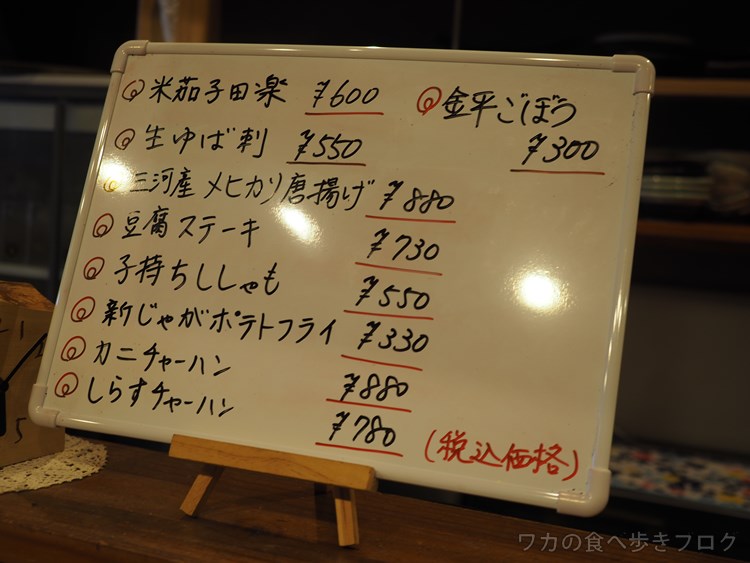 米茄子田楽 ¥600
生ゆば刺 ¥550
三河産メヒカリ唐揚げ ¥880
豆腐ステーキ ¥730
子持ちししゃも ¥550
新じゃがポテトフライ ¥330
カニチャーハン ¥880
しらすチャーハン ¥780
金平ごぼう
¥300
(税込価格)
ワカの食べ歩きブログ